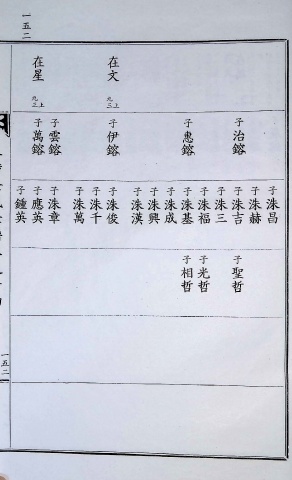 一五二
在文
在星
子治鎔
子惠鎔
子伊鎔
子雲鎔
子萬鎔
子洙昌
子洙赫
子洙吉
子洙三
子洙福
子洙基
子洙成
子洙興
子洙漢
子洙俊
子洙千
子洙萬
子洙章
子應英
子鍾英
子聖哲
子光哲
子相哲
一五二